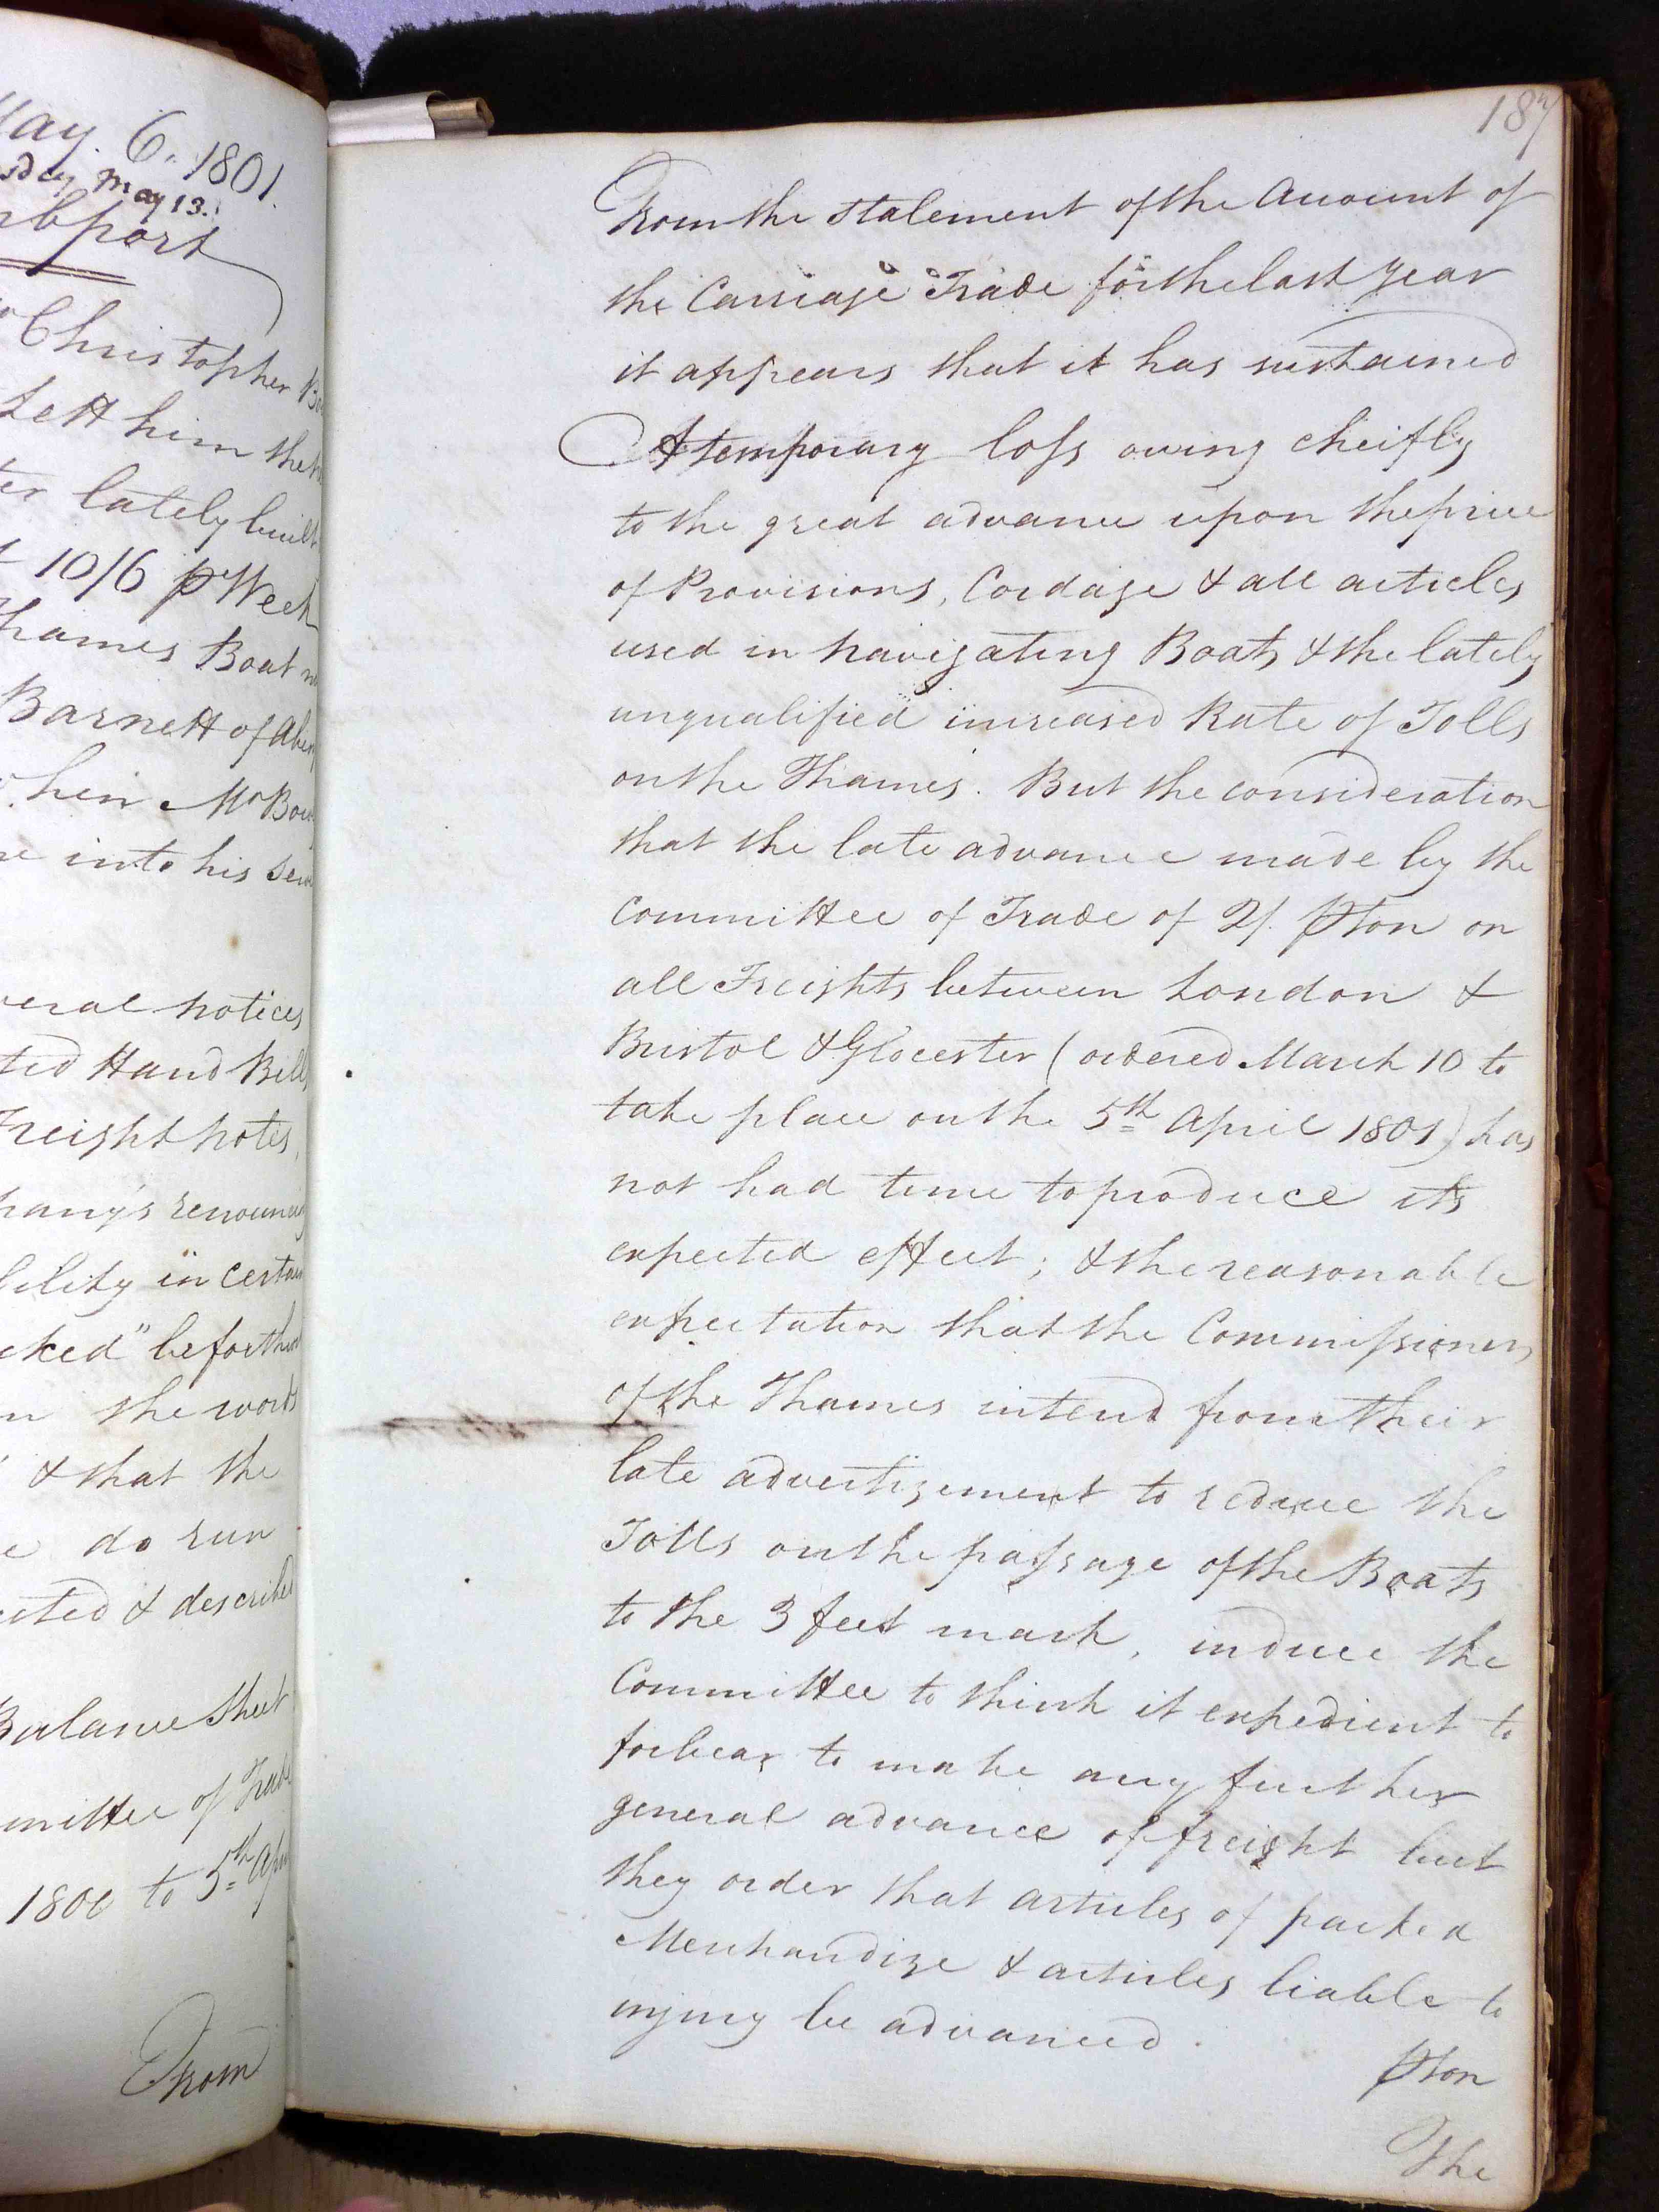 May. 6. 1801.
May 13.
Christopher
Lett him the
lately built
10/6 ⅌ Week
Thames Boat
Barnett of
him Mr
into his
notices
Hand Bills
Freight notes,
renounced
in certain
" before the
the words
& that the
do run
& described
Balance Sheet
of Trade
1800 to 5th
From
187
From the statement of the Account of
the Carriage Trade for the last year
it appears that it has sustained
A temporary loss owing cheifly
to the great advance upon the price
of Provisions, Cordage & all articles
used in navigating Boats & the lately
unqualified increased Rate of Tolls
on the Thames. But the consideration
that the late advance made by the
Committee of Trade of 2/. ⅌ ton on
all Freights between London &
Bristol & Glocester (ordered March 10 to
take place on the 5th April 1801) has
not had time to produce its
expected effect; & the reasonable
expectation that the Commissioners
of the Thames intend from their
late advertizement to reduce the
Tolls on the passage of the Boats
to the 3 feet mark, induce the
Committee to think it expedient to
forbear to make any further
general advance of freight but
they order that articles of packed
Merchandize & articles liable to
injury be advanced.
⅌ ton
The